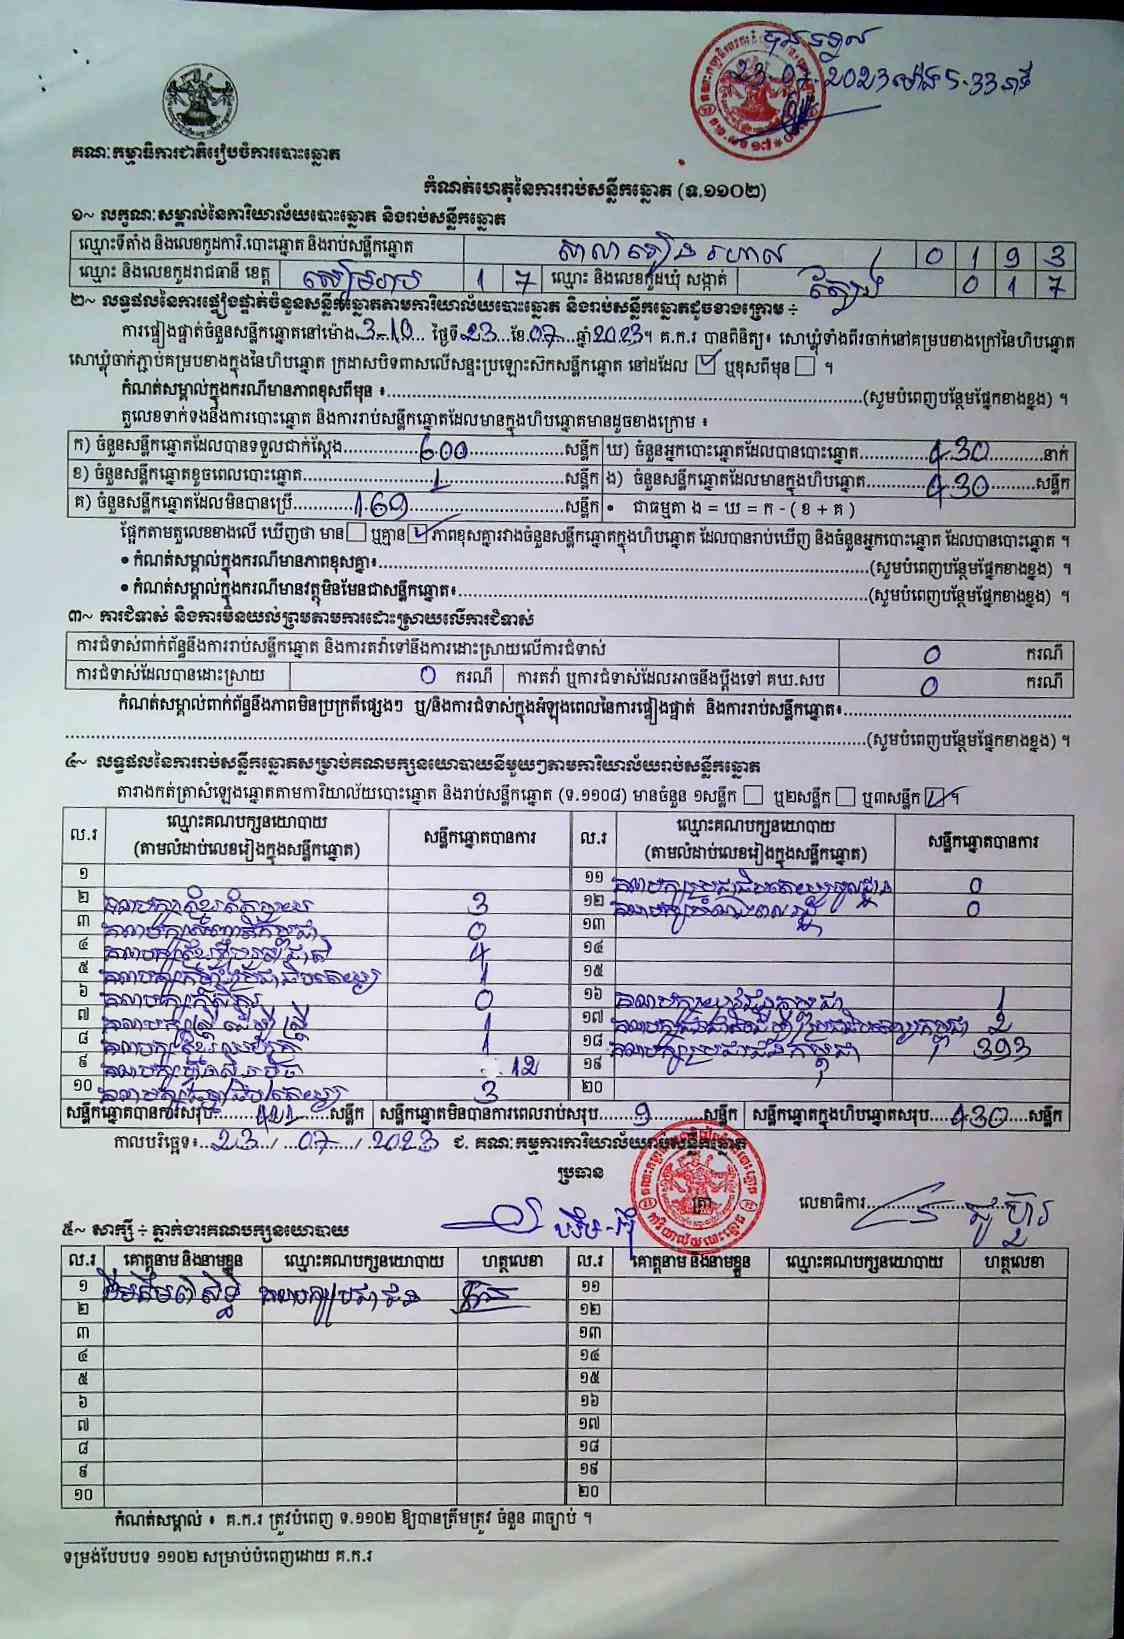 បានទទួល
23-07-2023 ម៉ោង 5-33 នាទី
គណៈកម្មាធិការជាតិរៀបចំការបោះឆ្នោត
កំណត់ហេតុនៃការរាប់សន្លឹកឆ្នោត (ទ.១១០២)
១~ លក្ខណៈសម្គាល់នៃការិយាល័យបោះឆ្នោត និងរាប់សន្លឹកឆ្នោត
ឈ្មោះទីតាំង និងលេខកូដការិ.បោះឆ្នោត និងរាប់សន្លឹកឆ្នោត សាលា រហាល 0 1 9 3
ឈ្មោះ និងលេខកូដរាជធានី ខេត្ត សៀមរាប 1 7 ឈ្មោះ និងលេខកូដឃុំ សង្កាត់ 0 1 7
២~ លទ្ធផលនៃការផ្ទៀងផ្ទាត់ចំនួនសន្លឹកឆ្នោតតាមការិយាល័យបោះឆ្នោត និងរាប់សន្លឹកឆ្នោតដូចខាងក្រោម ÷
ការផ្ទៀងផ្ទាត់ចំនួនសន្លឹកឆ្នោតនៅម៉ោង 3-10 ថ្ងៃទី 23 ខែ 07 ឆ្នាំ 2023 ។ គ.ក.រ បានពិនិត្យ៖ សោឃ្លុំទាំងពីរចាក់នៅគម្របខាងក្រៅនៃហិបឆ្នោត
សោឃ្លុំចាក់ភ្ជាប់គម្របខាងក្នុងនៃហិបឆ្នោត ក្រដាសបិទពាសលើសន្ទះប្រឡោះស៊កសន្លឹកឆ្នោត នៅដដែល ☑ ឬខុសពីមុន ☐ ។
កំណត់សម្គាល់ក្នុងករណីមានភាពខុសពីមុន ៖ (សូមបំពេញបន្ថែមផ្នែកខាងខ្នង) ។
តួលេខទាក់ទងនឹងការបោះឆ្នោត និងការរាប់សន្លឹកឆ្នោតដែលមានក្នុងហិបឆ្នោតមានដូចខាងក្រោម ៖
ក) ចំនួនសន្លឹកឆ្នោតដែលបានទទួលជាក់ស្តែង 600 សន្លឹក ឃ) ចំនួនអ្នកបោះឆ្នោតដែលបានបោះឆ្នោត 430 នាក់
ខ) ចំនួនសន្លឹកឆ្នោតខូចពេលបោះឆ្នោត 1 សន្លឹក ង) ចំនួនសន្លឹកឆ្នោតដែលមានក្នុងហិបឆ្នោត 430 សន្លឹក
គ) ចំនួនសន្លឹកឆ្នោតដែលមិនបានប្រើ 169 សន្លឹក • ជាធម្មតា ង = ឃ = ក - ( ខ + គ )
ផ្អែកតាមតួលេខខាងលើ ឃើញថា មាន ☐ ឬគ្មាន ☑ ភាពខុសគ្នារវាងចំនួនសន្លឹកឆ្នោតក្នុងហិបឆ្នោត ដែលបានរាប់ឃើញ និងចំនួនអ្នកបោះឆ្នោត ដែលបានបោះឆ្នោត ។
• កំណត់សម្គាល់ក្នុងករណីមានភាពខុសគ្នា៖ (សូមបំពេញបន្ថែមផ្នែកខាងខ្នង) ។
• កំណត់សម្គាល់ក្នុងករណីមានវត្ថុមិនមែនជាសន្លឹកឆ្នោត៖ (សូមបំពេញបន្ថែមផ្នែកខាងខ្នង) ។
៣~ ការជំទាស់ និងការមិនយល់ព្រមតាមការដោះស្រាយលើការជំទាស់
ការជំទាស់ពាក់ព័ន្ធនឹងការរាប់សន្លឹកឆ្នោត និងការតវ៉ាទៅនឹងការដោះស្រាយលើការជំទាស់ 0 ករណី
ការជំទាស់ដែលបានដោះស្រាយ 0 ករណី ការតវ៉ា ឬការជំទាស់ដែលអាចនឹងប្តឹងទៅ គឃ.សប 0 ករណី
កំណត់សម្គាល់ពាក់ព័ន្ធនឹងភាពមិនប្រក្រតីផ្សេងៗ ឬ/និងការជំទាស់ក្នុងអំឡុងពេលនៃការផ្ទៀងផ្ទាត់ និងការរាប់សន្លឹកឆ្នោត៖
(សូមបំពេញបន្ថែមផ្នែកខាងខ្នង) ។
៤~ លទ្ធផលនៃការរាប់សន្លឹកឆ្នោតសម្រាប់គណបក្សនយោបាយនីមួយៗតាមការិយាល័យរាប់សន្លឹកឆ្នោត
តារាងកត់ត្រាសំឡេងឆ្នោតតាមការិយាល័យបោះឆ្នោត និងរាប់សន្លឹកឆ្នោត (ទ.១១០៨) មានចំនួន ១សន្លឹក ☐ ឬ២សន្លឹក ☐ ឬ៣សន្លឹក ☑ ។
ល.រ ឈ្មោះគណបក្សនយោបាយ (តាមលំដាប់លេខរៀងក្នុងសន្លឹកឆ្នោត) សន្លឹកឆ្នោតបានការ ល.រ ឈ្មោះគណបក្សនយោបាយ (តាមលំដាប់លេខរៀងក្នុងសន្លឹកឆ្នោត) សន្លឹកឆ្នោតបានការ
១ ១១ គណបក្សប្រជាធិបតេយ្យមូលដ្ឋាន 0
២ 3 ១២ គណបក្ស 0
៣ 0 ១៣
៤ គណបក្សខ្មែរ 4 ១៤
៥ គណបក្ស 1 ១៥
៦ គណបក្ស 0 ១៦ គណបក្ស កម្ពុជា 1
៧ គណបក្សស្ត្រីដើម្បីស្ត្រី 1 ១៧ 2
៨ គណបក្សខ្មែរ 1 ១៨ គណបក្សប្រជាជនកម្ពុជា 393
៩ គណបក្ស 12 ១៩
១០ គណបក្ស 3 ២០
សន្លឹកឆ្នោតបានការសរុប 421 សន្លឹក សន្លឹកឆ្នោតមិនបានការពេលរាប់សរុប 9 សន្លឹក សន្លឹកឆ្នោតក្នុងហិបឆ្នោតសរុប 430 សន្លឹក
កាលបរិច្ឆេទ៖ 23 / 07 / 2023 ជ. គណៈកម្មការការិយាល័យរាប់សន្លឹកឆ្នោត
ប្រធាន
ត្រា
លេខាធិការ
៥~ សាក្សី ÷ ភ្នាក់ងារគណបក្សនយោបាយ
ល.រ គោត្តនាម និងនាមខ្លួន ឈ្មោះគណបក្សនយោបាយ ហត្ថលេខា ល.រ គោត្តនាម និងនាមខ្លួន ឈ្មោះគណបក្សនយោបាយ ហត្ថលេខា
១ គណបក្សប្រជាជន ១១
២ ១២
៣ ១៣
៤ ១៤
៥ ១៥
៦ ១៦
៧ ១៧
៨ ១៨
៩ ១៩
១០ ២០
កំណត់សម្គាល់ ៖ គ.ក.រ ត្រូវបំពេញ ទ.១១០២ ឱ្យបានត្រឹមត្រូវ ចំនួន ៣ច្បាប់ ។
ទម្រង់បែបបទ ១១០២ សម្រាប់បំពេញដោយ គ.ក.រ